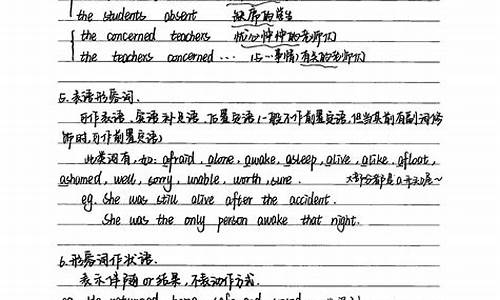 the students absent 缺席的学生
the concerned teachers 忧心忡忡的老师们
the teachers concerned … (与…事情)有关的老师们
5. 表语形容词.
可作表语、宾语补足语、后置定语(一般不作前置定语,但当其前有副词修
饰时,可作前置定语)
此类词有,如: afraid, alone, awake, asleep, alive, alike, afloat,
ashamed, well, sorry, unable, worth, sure. 大部分都是a开头的~
eg. She was still alive after the accident.
She was the only person awake that night.
6. 形容词作状语.
表示伴随or结果,不表动作方式.
eg. He returned home safe and